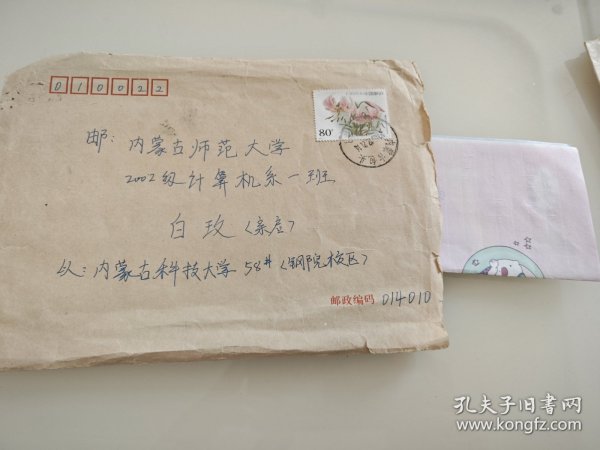 010022
80分
邮: 内蒙古师范大学
2002级计算机系一班
白玫(亲启)
从: 内蒙古科技大学 58# (钢院校区)
邮政编码 014010
孔夫子旧书网
www.kongfz.com